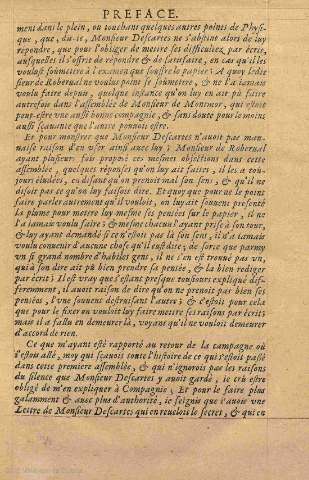 PREFACE.
ment dans le plein, ou touchant quelques autres points de Physi-
que, que, dis-ie, Monsieur Descartes ne s'abstint alors de luy
répondre, que pour l'obliger de mettre ses difficultez par écrit,
ausquelles il s'offrit de répondre & de satisfaire, en cas qu'il les
voulust soûmettre à l'examen que souffre le papier: A quoy ledit
sieur de Roberual ne voulut point se soûmettre, & ne l'a iamais
voulu faire depuis, quelque instance qu'on luy en ait pû faire
autrefois dans l'assemblée de Monsieur de Montmor, qui estoit
peut-estre vne aussi bonne compagnie, & sans doute pour le moins
aussi sçauante que l'autre pouuoit estre.
Et pour monstrer que Monsieur Descartes n'auoit pas mau-
uaise raison d'en vser ainsi auec luy; Monsieur de Roberual
ayant plusieurs fois proposé ces mesmes objections dans cette
assemblée, quelques réponses qu'on luy ait faites, il les a tou-
jours éludées, en disant qu'on prenoit mal son sens, & qu'il ne
disoit pas ce qu'on luy faisoit dire. Et quoy que pour ne le point
faire parler autrement qu'il vouloit, on luy ait souuent presenté
la plume pour mettre luy mesme ses pensées sur le papier, il ne
l'a iamais voulu faire; & mesme chacun l'ayant prise à son tour,
& luy ayant demandé si ce n'estoit pas là son sens, il n'a iamais
voulu conuenir d'aucune chose qu'il eust dite; de sorte que parmy
vn si grand nombre d'habiles gens, il ne s'en est trouué pas vn,
qui à son dire ait pû bien prendre sa pensée, & la bien rediger
par écrit; Il est vray que s'estant presque tousiours expliqué dif-
feremment, il auoit raison de dire qu'on ne prenoit pas bien ses
pensées, l'vne souuent destruisant l'autre; & c'estoit pour cela
que pour le fixer on vouloit luy faire mettre ses raisons par écrit;
mais il a fallu en demeurer là, voyant qu'il ne vouloit demeurer
d'accord de rien.
Ce que m'ayant esté rapporté au retour de la campagne où
i'estois allé, moy qui sçauois toute l'histoire de ce qui s'estoit passé
dans cette premiere assemblée, & qui n'ignorois pas les raisons
du silence que Monsieur Descartes y auoit gardé, ie crû estre
obligé de m'en expliquer à Compagnie; Et pour le faire plus
galamment & auec plus d'authorité, ie feignis que i'auois vne
Lettre de Monsieur Descartes qui en reueloit le secret, & qui en